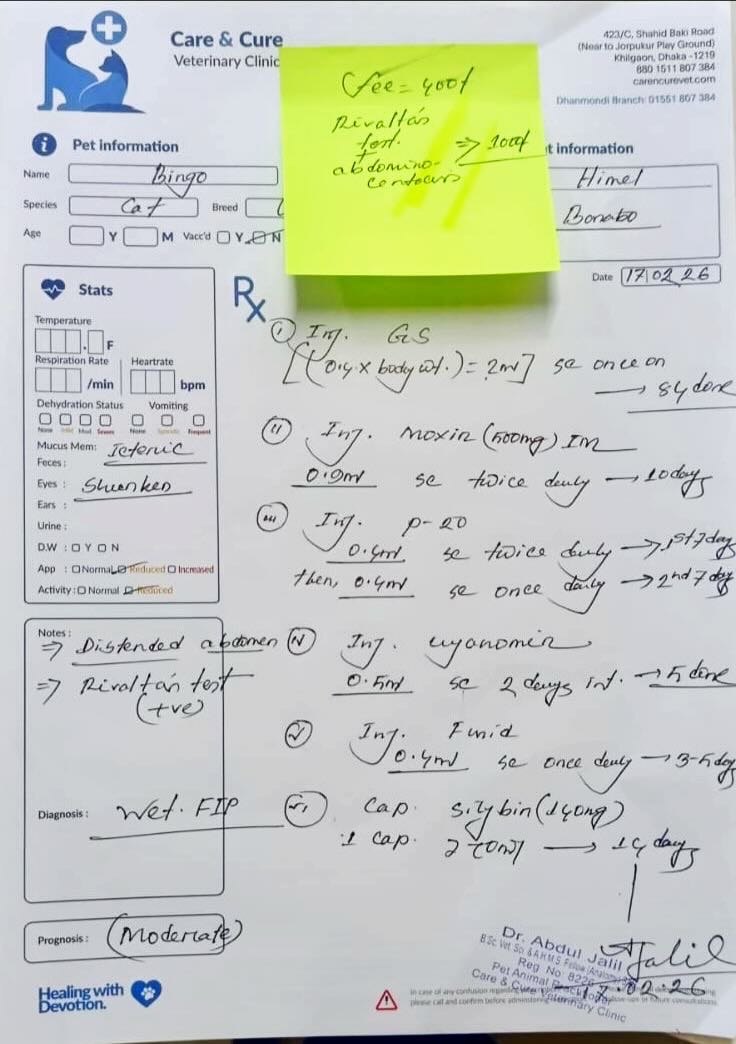 Care & Cure
Veterinary Clinic
423/C, Shahid Baki Road
(Near to Jorpukur Play Ground)
Khilgaon, Dhaka -1219
880 1511 807 384
carencurevet.com
Dhanmondi Branch: 01551 807 384
Fee = 400/
Rivaltás
test.
+
abdomino-
centesis
=> 1000/
Pet information
t information
Name Bingo
Himel
Species Cat Breed
Bonsho
Age Y M Vacc'd Y N
Date 17|02 26
Stats
Temperature
F
Respiration Rate Heartrate
/min bpm
Dehydration Status Vomiting
None Mild Mod Severe None Sporadic Frequent
Mucus Mem: Icteric
Feces :
Eyes : Shunken
Ears :
Urine :
D.W : Y N
App : Normal Reduced Increased
Activity : Normal Reduced
Notes :
=> Distended abdomen
=> Rivaltás test
(+ve)
Diagnosis : Wet. FIP
Prognosis : (Moderate)
Rx
(i) Inj. GS
[(0.4 x body wt.) = 2ml] sc once on
→ 84 dose
(ii) Inj. Moxin (500mg) IM
0.9ml sc twice daily → 10 days
(iii) Inj. P-20
0.4ml sc twice daily → 1st 7 day
then, 0.4ml sc once daily → 2nd 7 day
(iv) Inj.
0.5ml sc 2 days int. → 5 dose
(v) Inj. Fusid
0.4ml sc once daily → 3-5 day
(vi) Cap. Silybin (140mg)
1 cap. → 14 days
Jalil
17.02.26
Dr. Abdul Jalil
Pet Animal Practitioner
Care & Cure Veterinary Clinic
Healing with
Devotion.
In case of any confusion regarding
please call and confirm before